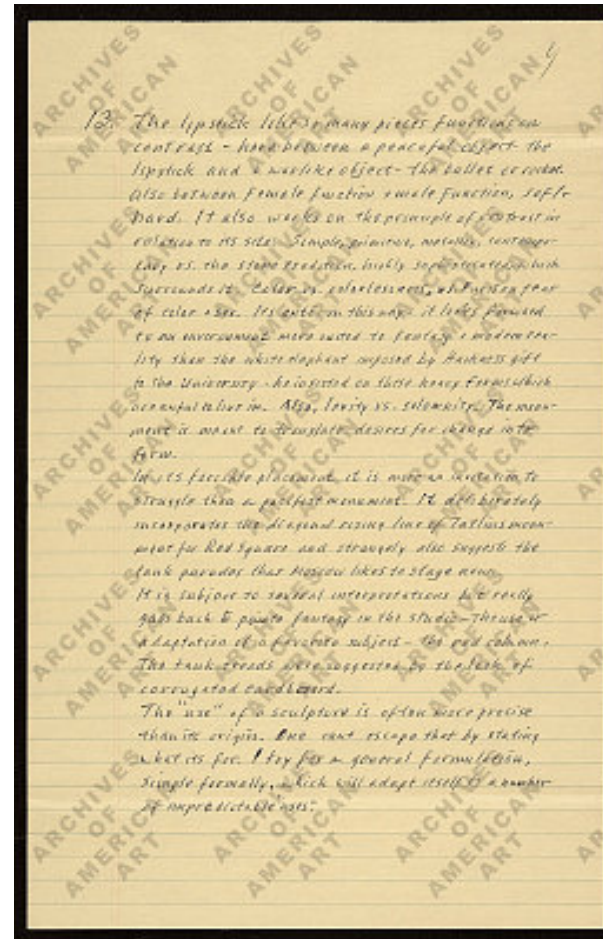 4
13. The lipstick like so many pieces functions on
contrast - here between a peaceful object - the
lipstick and a warlike object - the bullet or rocket.
Also between female function + male function, soft +
hard. It also works on the principle of contrast in
relation to its site: Simple, primitive, metallic, contempor-
ary vs. the stone tradition, highly sophisticated which
surrounds it. Color vs. colorlessness, which is a fear
of color + sex. Its in this way - it looks forward
to an environment more suited to fantasy + modern rea-
lity than the white elephant imposed by Harkness gift
to the University - he insisted on those heavy forms which
are awful to live in. Also, levity vs. solemnity. The monu-
ment is meant to translate desires for change into
form.
In its forcible placement, it is more an invitation to
struggle than a pacifist monument. It deliberately
incorporates the diagonal rising line of Tatlins monu-
ment for Red Square and strangely also suggests the
tank parades that Moscow likes to stage now.
It is subject to several interpretations but really
goes back to private fantasy in the studio - The use or
adaptation of a favorite subject - the red column.
The tank treads were suggested by the look of
corrugated cardboard.
The "use" of a sculpture is often more precise
than its origin. One cant escape that by stating
what its for. I try for a general formulation,
simple formally, which will adapt itself to a number
of unpredictable uses.
ARCHIVES
OF
AMERICAN
ART